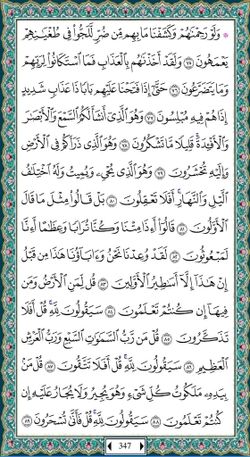 ۞ وَلَوْ رَحِمْنَٰهُمْ وَكَشَفْنَا مَا بِهِم مِّن ضُرٍّ لَّلَجُّوا۟ فِى طُغْيَٰنِهِمْ
يَعْمَهُونَ ٧٥ وَلَقَدْ أَخَذْنَٰهُم بِٱلْعَذَابِ فَمَا ٱسْتَكَانُوا۟ لِرَبِّهِمْ
وَمَا يَتَضَرَّعُونَ ٧٦ حَتَّىٰٓ إِذَا فَتَحْنَا عَلَيْهِم بَابًا ذَا عَذَابٍ شَدِيدٍ
إِذَا هُمْ فِيهِ مُبْلِسُونَ ٧٧ وَهُوَ ٱلَّذِىٓ أَنشَأَ لَكُمُ ٱلسَّمْعَ وَٱلْأَبْصَٰرَ
وَٱلْأَفْـِٔدَةَ ۚ قَلِيلًا مَّا تَشْكُرُونَ ٧٨ وَهُوَ ٱلَّذِى ذَرَأَكُمْ فِى ٱلْأَرْضِ
وَإِلَيْهِ تُحْشَرُونَ ٧٩ وَهُوَ ٱلَّذِى يُحْىِۦ وَيُمِيتُ وَلَهُ ٱخْتِلَٰفُ
ٱلَّيْلِ وَٱلنَّهَارِ ۚ أَفَلَا تَعْقِلُونَ ٨٠ بَلْ قَالُوا۟ مِثْلَ مَا قَالَ
ٱلْأَوَّلُونَ ٨١ قَالُوٓا۟ أَءِذَا مِتْنَا وَكُنَّا تُرَابًا وَعِظَٰمًا أَءِنَّا
لَمَبْعُوثُونَ ٨٢ لَقَدْ وُعِدْنَا نَحْنُ وَءَابَآؤُنَا هَٰذَا مِن قَبْلُ
إِنْ هَٰذَآ إِلَّآ أَسَٰطِيرُ ٱلْأَوَّلِينَ ٨٣ قُل لِّمَنِ ٱلْأَرْضُ وَمَن
فِيهَآ إِن كُنتُمْ تَعْلَمُونَ ٨٤ سَيَقُولُونَ لِلَّهِ ۚ قُلْ أَفَلَا
تَذَكَّرُونَ ٨٥ قُلْ مَن رَّبُّ ٱلسَّمَٰوَٰتِ ٱلسَّبْعِ وَرَبُّ ٱلْعَرْشِ
ٱلْعَظِيمِ ٨٦ سَيَقُولُونَ لِلَّهِ ۚ قُلْ أَفَلَا تَتَّقُونَ ٨٧ قُلْ مَنۢ
بِيَدِهِۦ مَلَكُوتُ كُلِّ شَىْءٍ وَهُوَ يُجِيرُ وَلَا يُجَارُ عَلَيْهِ إِن
كُنتُمْ تَعْلَمُونَ ٨٨ سَيَقُولُونَ لِلَّهِ ۚ قُلْ فَأَنَّىٰ تُسْحَرُونَ ٨٩
347